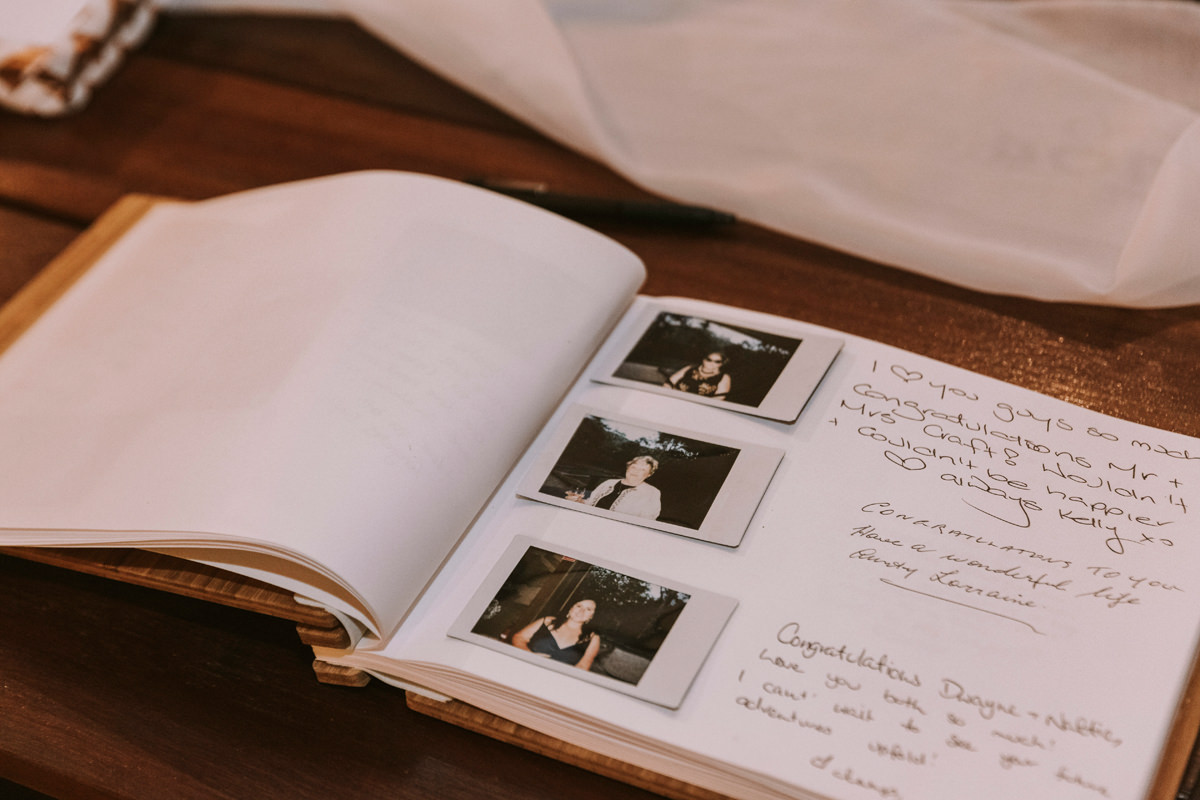 I ♡ you guys so much
Congratulations Mr +
Mrs Craft! Wouldn't
+ couldn't be happier
♡ always Kelly xo
CONGRATULATIONS TO YOU
Have a wonderful life
Aunty Lorraine
Congratulations Dwayne +
Love you both so much!
I can't wait to see your future
adventures unfold!